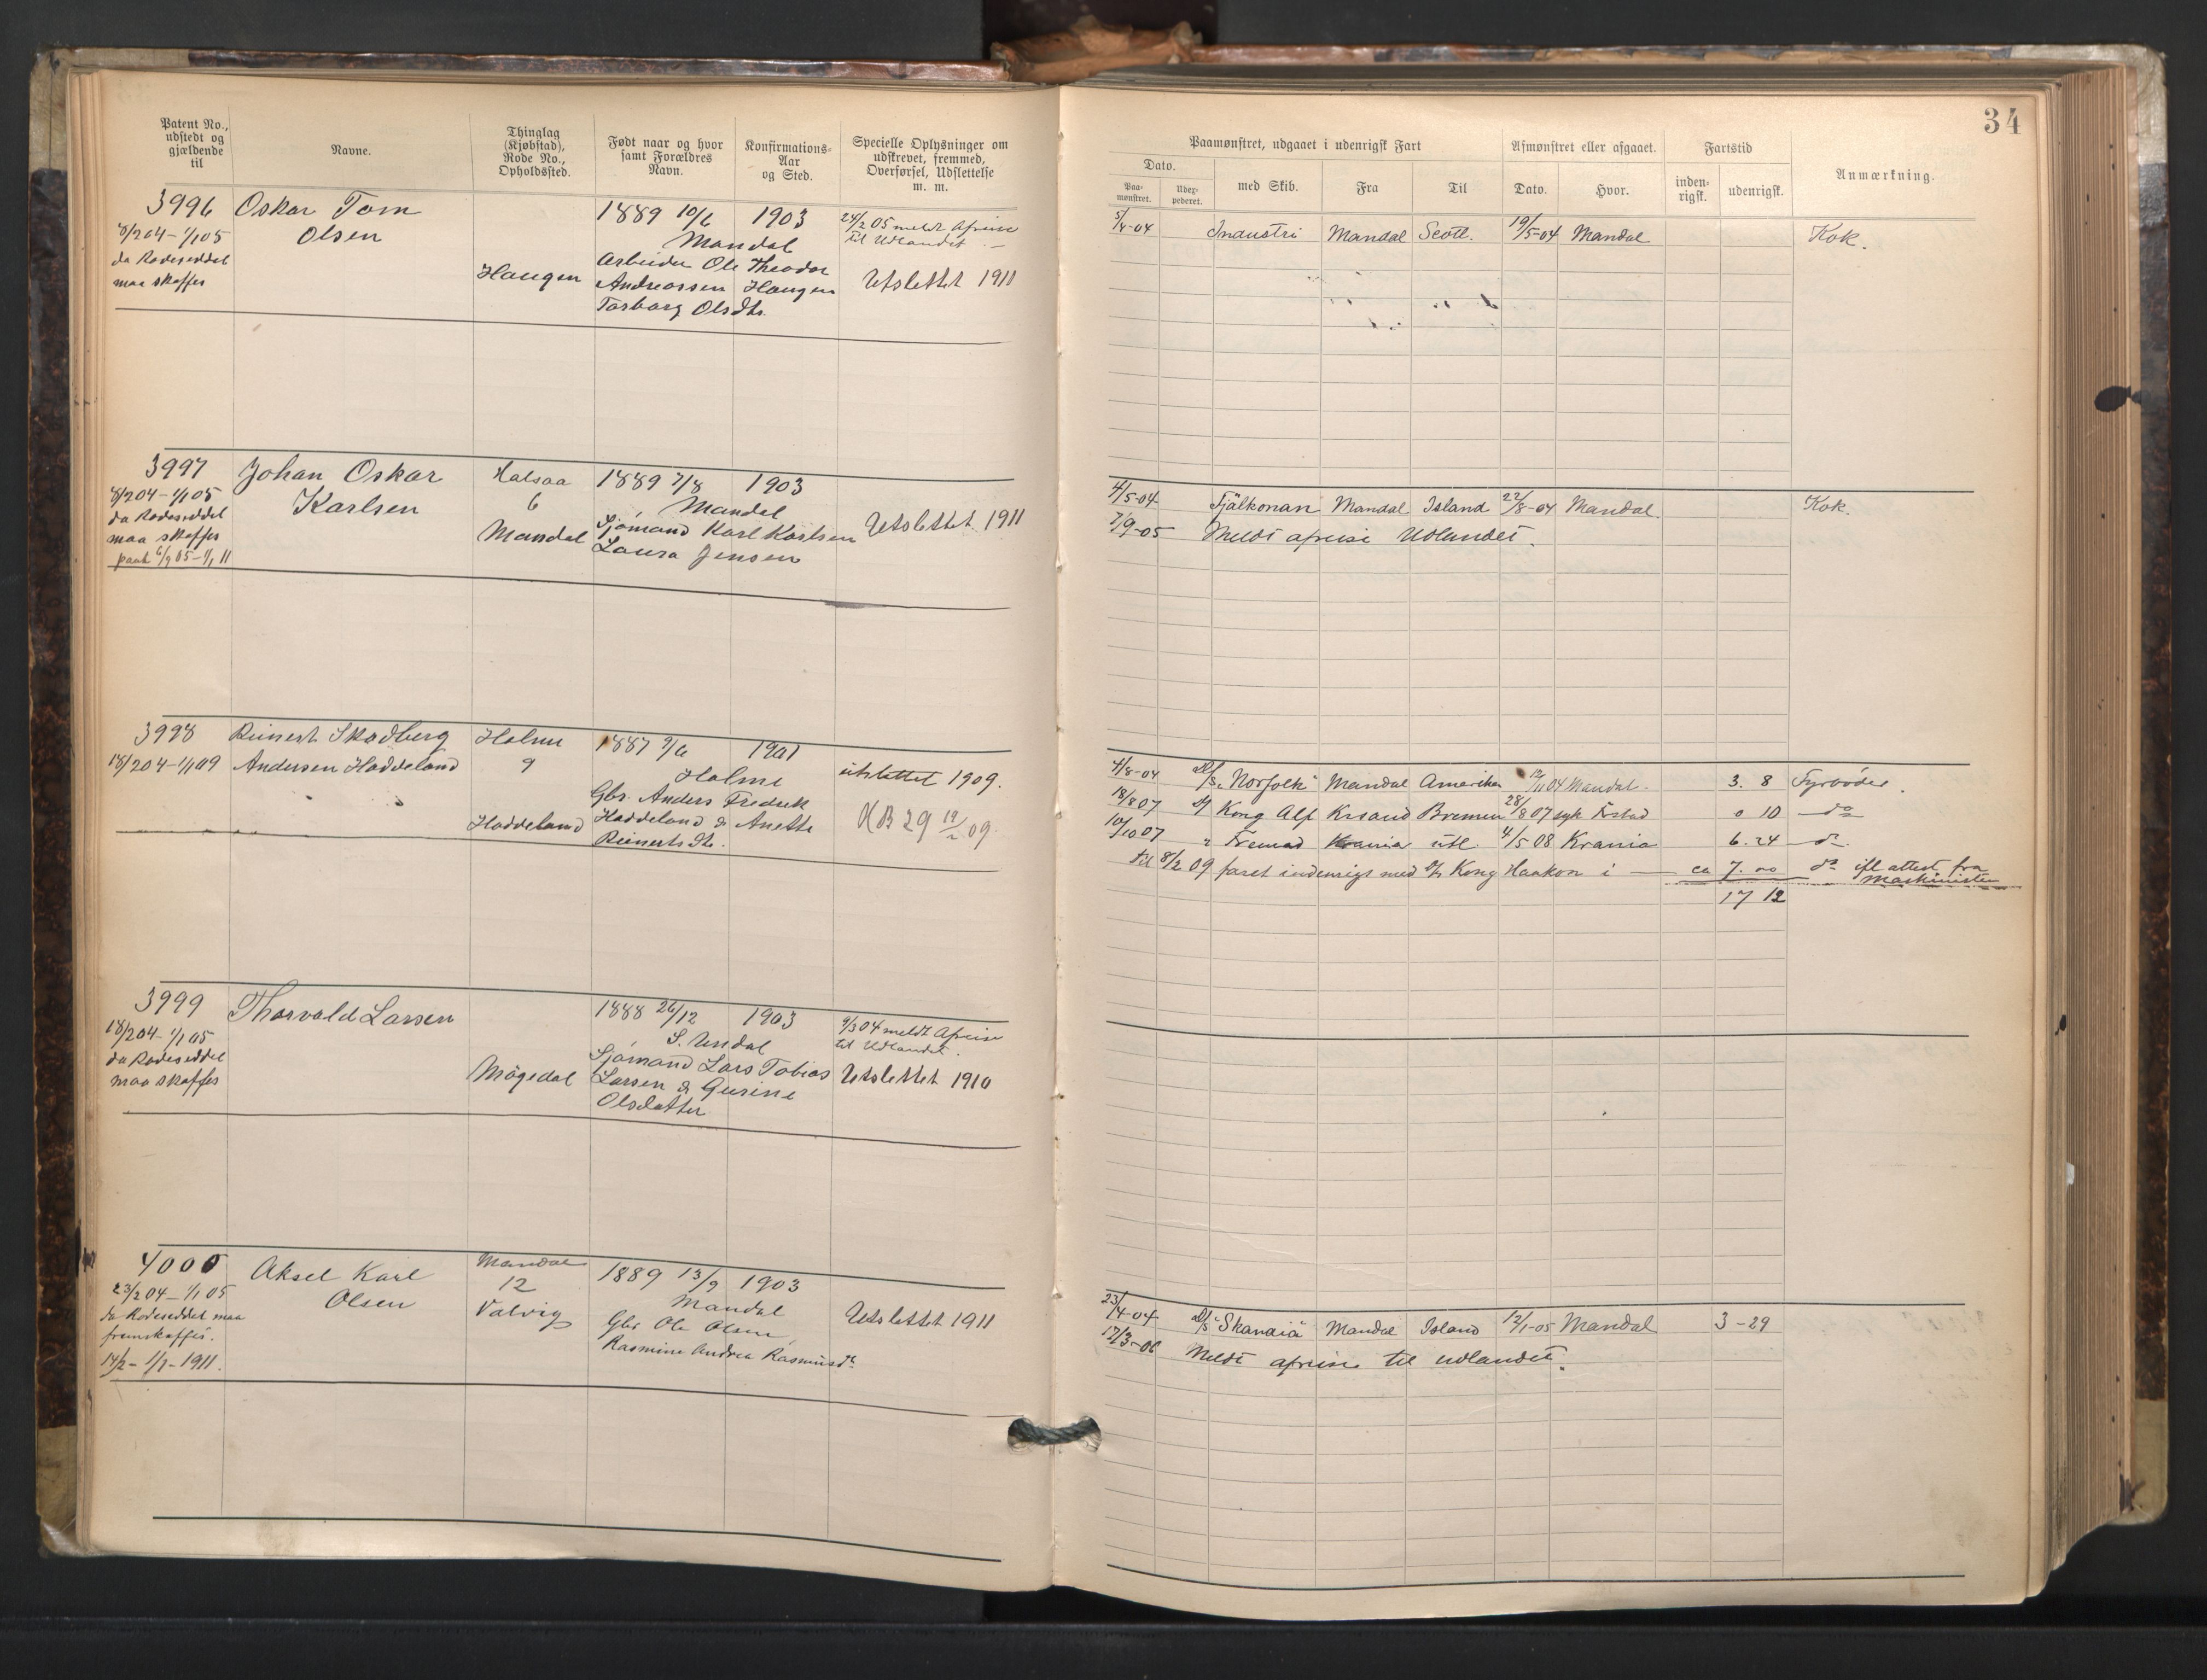 34
Patent No., udstedt og gjældende til
Navne.
Thinglag (Kjøbstad), Rode No., Opholdssted.
Født naar og hvor samt Forældres Navn.
Konfirmations-Aar og Sted.
Specielle Oplysninger om udskrevet, fremmed, Overførsel, Udslettelse m. m.
Paamønstret, udgaaet i udenrigsk Fart
Afmønstret eller afgaaet.
Fartstid
Anmærkning.
Dato.
Paa-mønstret.
med Skib.
Fra
Til
Dato.
Hvor.
inden-rigsk.
udenrigsk.
3996 Oskar Tom 1889 10/6 1903 24/2 05 meldt Afreise
8/2 04 - 1/1 05 Olsen Mandal til Udlandet.
da Rodeseddel Arbeider Ole Theodor
maa skaffes Haugen Andreassen Haugen Utslettet 1911
Tarborg Olsdtr.
5/4-04 Industri Mandal Scotl. 19/5-04 Mandal Kok.
3997 Johan Oskar Halsaa 1889 7/8 1903
8/2 04 - 1/1 05 Karlsen 6 Mandal
da Rodeseddel Mandal Sjømand Karl Karlsen Utslettet 1911
maa skaffes Laura Jensen
paat 6/9 05 - 1/1 11
4/5-04 Fjälkonan Mandal Island 22/8-04 Mandal. Kok.
7/9-05 Meldt afreise Udlandet.
3998 Reinert Skadberg Holme 1887 9/6 1901
18/2 04 - 1/1 09 Andersen Haddeland 9 Holme utslettet 1909.
Gbr. Anders Fredrik
Haddeland Haddeland & Anette 29 19/2 09.
Reinertsdtr.
4/8-04 D/S "Norfolk" Mandal Amerika 12/11 04 Mandal. 3. 8 Fyrbøder.
18/8 07 Kong Alf Krsand Bremen 28/8 07 syk 0 10 do
10/10 07 " Fremad Krania utl. 4/5 08 Krania 6. 24 do
til 8/2 09 faret indenrigs med Kong Haakon i ca 7. 00 do ifl attest fra maskinisten
17 12
3999 Thorvald Larsen 1888 26/12 1903 9/3 04 meldt Afreise
18/2 04 - 1/1 05 S. Undal til Udlandet.
da Rodeseddel Sjømand Lars Tobias
maa skaffes Møgedal Larsen & Gurine Utslettet 1910
Olsdatter
4000 Aksel Karl Mandal 1889 13/9 1903
23/2 04 - 1/1 05 Olsen 12 Mandal
da Rodeseddel maa Valvig Gbr Ole Olsen, Utslettet 1911
fremskaffes. Rasmine Andrea Rasmusdtr
14/2 - 1/1 - 1911.
23/4-04 D/S "Skandia" Mandal Island 12/1-05 Mandal 3-29
17/3-06 Meldt afreise til udlandet.